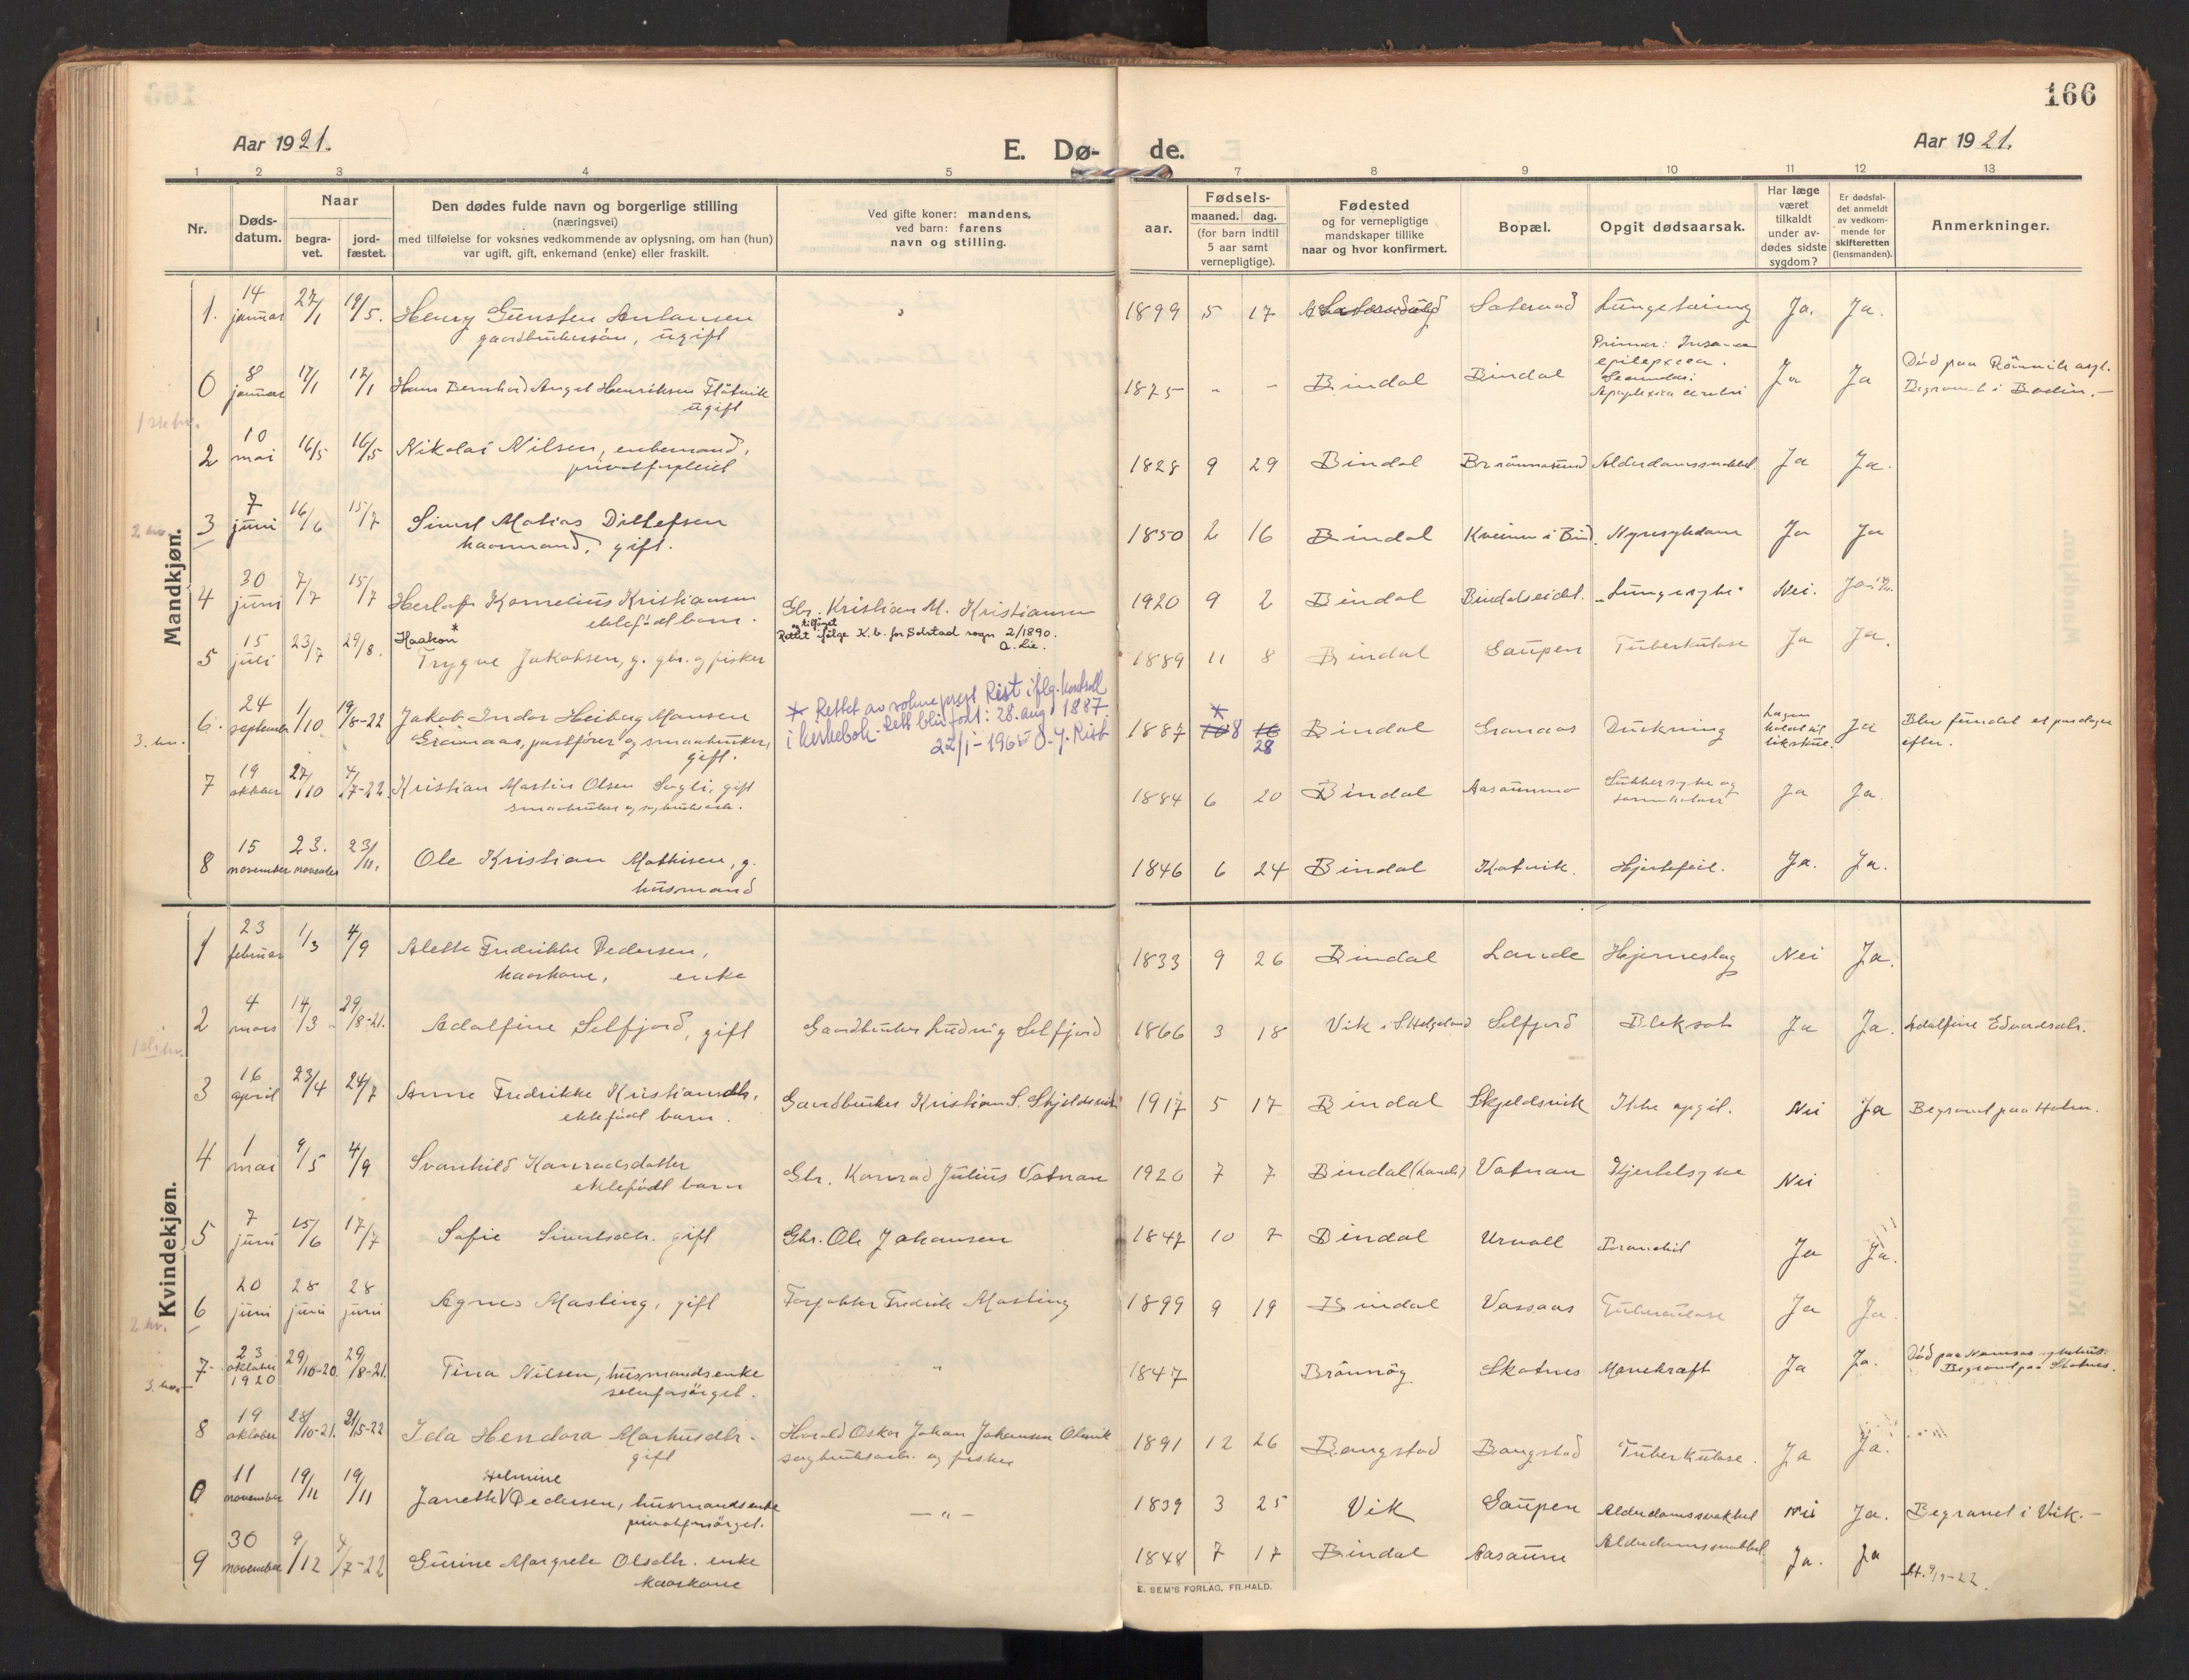 166
Aar 1921.
E. Dø-
de.
Aar 1921.
1 2 3 4 5 7 8 9 10 11 12 13
Nr.
Døds-
datum.
Naar
begra-
vet.
jord-
fæstet.
Den dødes fulde navn og borgerlige stilling
(næringsvei)
med tilføielse for voksnes vedkommende av oplysning, om han (hun)
var ugift, gift, enkemand (enke) eller fraskilt.
Ved gifte koner: mandens,
ved barn: farens
navn og stilling.
aar.
Fødsels-
maaned. dag.
(for barn indtil
5 aar samt
vernepligtige).
Fødested
og for vernepligtige
mandskaper tillike
naar og hvor konfirmert.
Bopæl.
Opgit dødsaarsak.
Har læge
været
tilkaldt
under av-
dødes sidste
sygdom?
Er dødsfal-
det anmeldt
av vedkom-
mende for
skifteretten
(lensmanden).
Anmerkninger.
Mandkjøn.
1. 14 januar 27/1 19/5. Henry Gunsten
gaardbrukersøn, ugift
1899 5 17 Lungetæring Ja. Ja.
0 8 januar 17/1 17/1 Hans Bernhard Angel Henriksen Flötnvik
ugift
1875 - - Bindal Bindal Primær: Insania
epileptica.
Secundær:
Apoplexia cerebri
Ja Ja Död paa Rönvik asyl.
Begravet i Bodin.-
1 skk hv.
2 10 mai 16/5 16/5 Nikolai Nilsen, enkemand,
privatforpleiet
1828 9 29 Bindal Brönnøsund Alderdomssvakhet Ja Ja.
2 hv.
3 7 juni 16/6 15/7 Sivert Matias Ditlefsen
kaarmand, gift.
1850 2 16 Bindal Kveinen i Bind. Nyresykdom Ja Ja
4 30 juni 7/7 15/7 Herlof Kornelius Kristiansen
ektefødt barn.
Gbr. Kristian M. Kristiansen
1920 9 2 Bindal Bindalseidet. "Lungesyke" Nei. Ja
og tilføiet
Rettet ifølge K.b. for Solstad sogn 2/1890.
O. Lie.
5 15 juli 23/7 29/8. Haakon*
Trygve Jakobsen, g. gbr. og fisker
1889 11 8 Bindal Saupen Tuberkulose Ja Ja.
6. 24 september 1/10 19/8-22 Jakob Indor Heiberg Monsen
Granaas, postfører og smaabruker,
gift.
* Rettet av sokneprest Rist iflg. kontroll
i kirkebok. Rett blir født: 28. aug. 1887.
22/1-1965 O. J. Rist
1887 * 10 8 16 28 Bindal Granaas Drukning Lægen
holdt til
likskue. Ja Blev fundet et par dager
efter.
3. hv.
7 19 oktober 27/10 4/7-22 Kristian Martin Olsen Sagli, gift
smaabruker og sagbruksarb.
1884 6 20 Bindal Aasaunmo Sukkersyke og
Ja Ja.
8 15 november 23. november 23/11. Ole Kristian Mathisen, g.
husmand
1846 6 24 Bindal Hjertefeil. Ja. Ja.
Kvindekjøn.
1 23 februar 1/3 4/9 Alette Fredrikke Pedersen,
kaarkone, enke
1833 9 26 Bindal Lande Hjerneslag Nei Ja.
2 4 mars 14/3 29/8-21. Adolfine Selfjord, gift
Gaardbruker Ludvig Selfjord
1866 3 18 Vik i S. Helgeland Selfjord Bleksot Ja Ja. Adolfine Edvardsdtr.
3 16 april 23/4 24/7 Anne Fredrikke Kristiansdtr,
ektefødt barn.
Gaardbruker Kristian S. Skjeldsvik
1917 5 17 Bindal Skjeldsvik Ikke opgit. Nei Ja Begravet paa Holm.
4 1 mai 9/5 4/9 Svanhild Konradsdatter
ektefødt barn
Gbr. Konrad Julius Vatnan
1920 7 7 Bindal (Lande) Vatnan Hjertesyke Nei
5 7 juni 15/6 17/7 Sofie Sivertsdtr. gift
Gbr. Ole Johansen
1847 10 7 Bindal Urvoll Bronchit Ja Ja.
6 20 juni 28 juni 28 juni Agnes Masting, gift
Forpakter Fredrik Masting
1899 9 19 Bindal Vassaas Tuberculose Ja Ja.
2 hv.
7 23 oktober 1920 29/10-20. 29/8-21. Tina Nilsen, husmandsenke
selvforsörget.
"
1847 Brönnög Skotnes Mavekræft Ja Ja. Död paa Namsos sykehus.
Begravet paa Skotnes.
8 19 oktober 28/10-21. 21/5-22 Ida Hendora Markusdtr.
gift
Harald Oskar Johan Johansen
sagbruksarb. og fisker
1891 12 26 Bangstad Bangstad Tuberkulose. Ja Ja.
0 11 november 19/11 19/11 Helmine
Janette V Pedersen, husmandsenke
privatforsörget.
— " —
1839 3 25 Vik Saupen Alderdomssvakhet Nei Ja. Begravet i Vik.-
9 30 november 9/12 4/7-22 Gurine Margrete Olsdtr. enke
kaarkone
1848 7 17 Bindal Aasaune Alderdomssvakhet Ja. Ja
E. SEM'S FORLAG, FR.HALD.